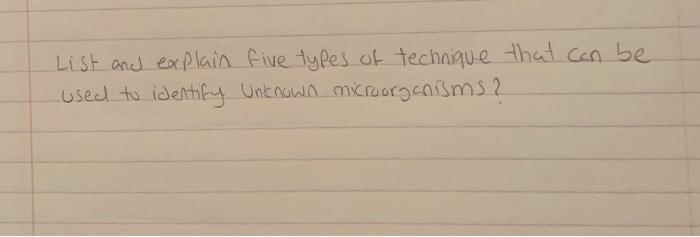 List and explain five types of technique that can be
used to identify unknown microorganisms?